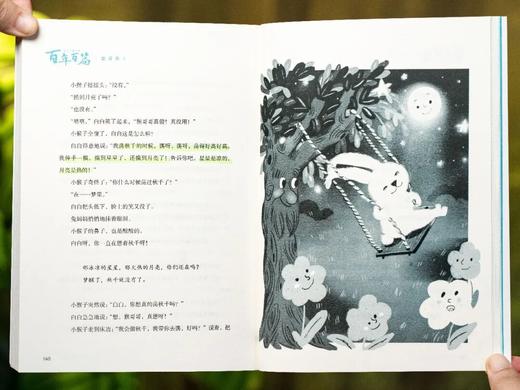 百年百篇
小猴子摇摇头:“没有。”
“抓到月亮了吗?”
“也没有。”
“嘻嘻,”白白笑了起来,“猴哥哥真傻!真没用!”
小猴子全懂了,白白这是怎么啦?
白白得意地说:“我荡秋千的时候,荡呀,荡呀,荡得好高好高,
我伸手一摘,摘到星星了,还摘到月亮了!告诉你吧,星星是凉的,
月亮是热的!”
小猴子奇怪了:“你什么时候荡过秋千了?”
“在——梦里。”
白白把头低下,脸上的笑又没了。
兔妈妈悄悄地抹着眼泪。
小猴子的鼻子,也是酸酸的。
白白呀,你一直在想着秋千呀!
那冰凉的星星,那火热的月亮,你们还在吗?
梦醒了,秋千就没有了。
小猴子突然说:“白白,你想真的荡秋千吗?”
白白急急地说:“想,猴哥哥,真想呀!”
小猴子走到床边:“我会做秋千,我带你去荡,好吗?”说着,把
140